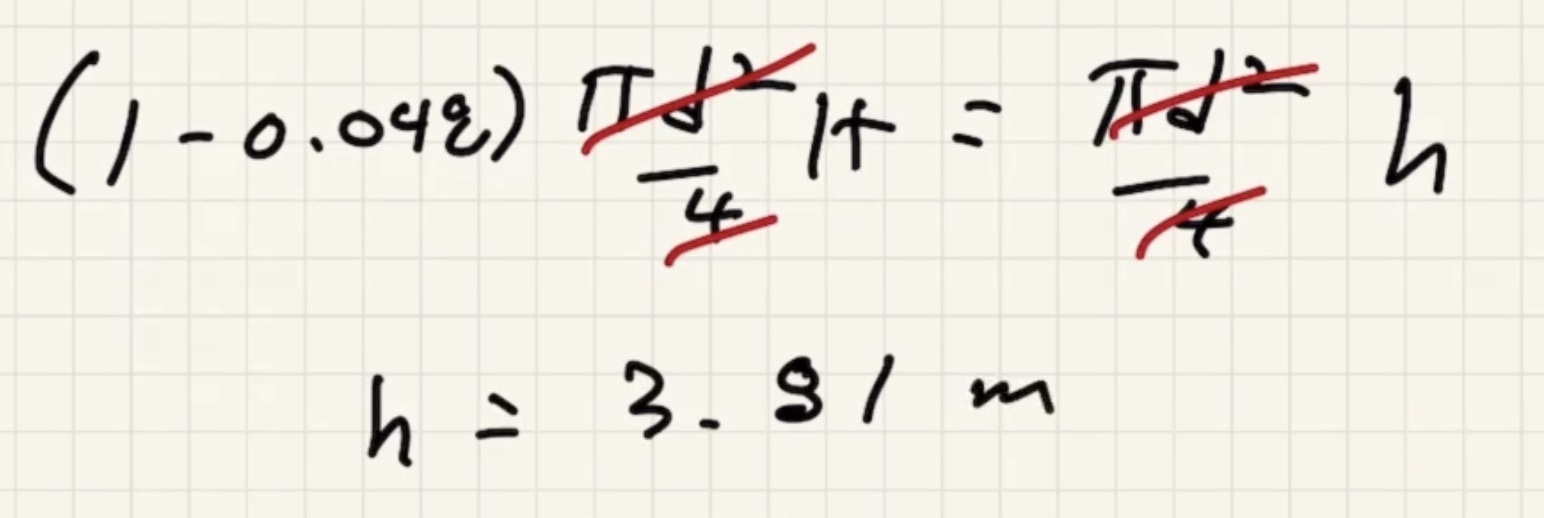 (1-0.048) πd²/4 H = πd²/4 h
h = 3.81 m